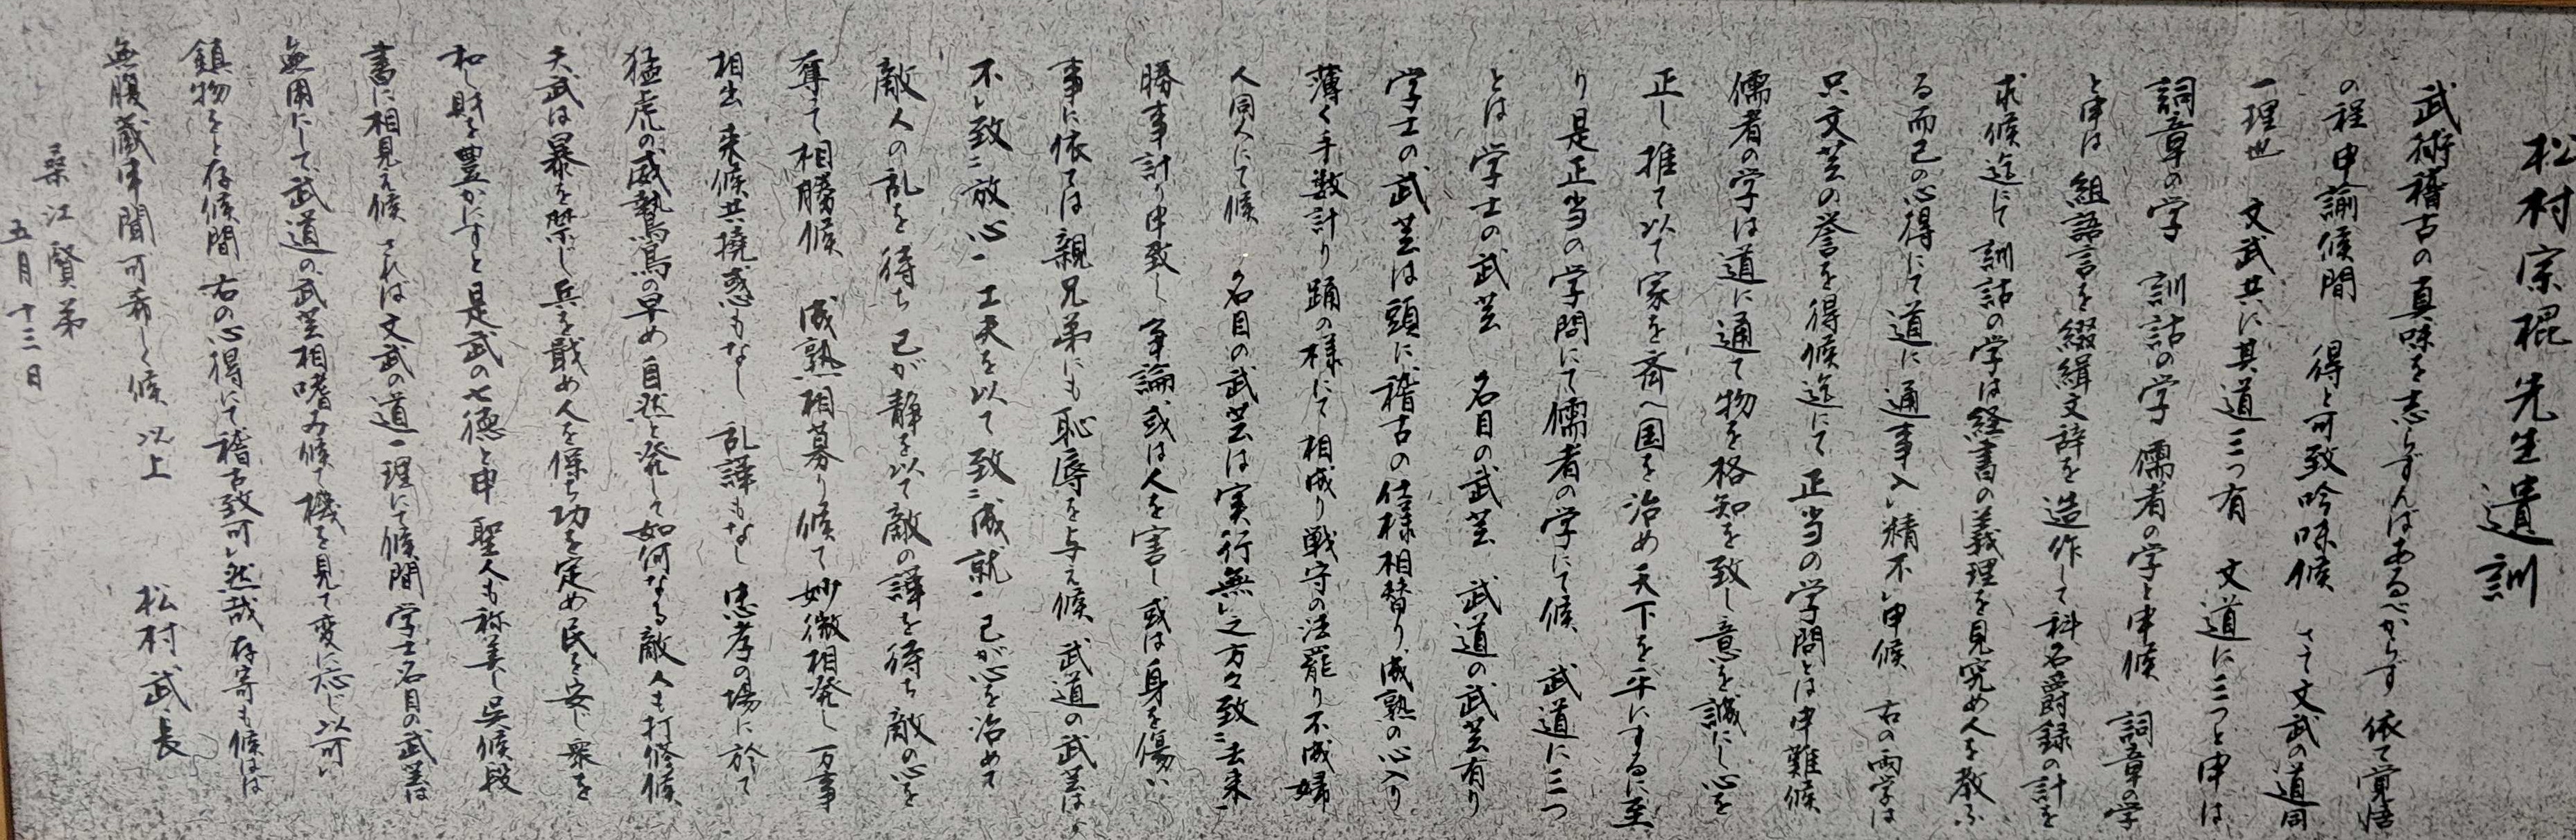 松村宗棍先生遺訓
武術稽古の真味を志らずんばあるべからず 依て覚悟
の程申諭候間 得と可致吟味候 さて文武の道同
一理也 文武共に其道三つ有 文道に三つと申は
詞章の学 訓詁の学 儒者の学と申候 詞章の学
と申は 組語言を綴緝文辞を造作して科名爵録の計を
求候迄にて 訓詁の学は経書の義理を見究め人を教ふ
る而已の心得にて道に通事入レ精不レ申候 右の両学は
只文芸の誉を得候迄にて 正当の学問とは申難候
儒者の学は道に通て物を格知を致し意を誠にし心を
正し推て以て家を斉へ国を治め天下を平にするに至
り是正当の学問にて儒者の学にて候 武道に三つ
とは 学士の武芸 名目の武芸 武道の武芸有り
学士の武芸は頭に稽古の仕様相替り 成熟の心入り
薄く手数計り踊の様にて相成り戦守の法罷り不成婦
人同人にて候 名目の武芸は実行無レ之方々致ニ去来一
勝事計り申致し 争論或は人を害し或は身を傷い
事に依ては親兄弟にも恥辱を与え候 武道の武芸は
不レ致ニ放心一 工夫を以て致ニ成就一 己が心を治めて
敵人の乱を待ち 己が静を以て敵の譁を待ち 敵の心を
奪て相勝候 成熟相募り候て妙微相発し 万事
相出来候共撓惑もなし 乱譁もなし 忠孝の場に於て
猛虎の威鷲鳥の早め 自然と発して如何なる敵人も打修候
夫武は暴を禁じ兵を戢め人を保ち功を定め民を安じ衆を
和し財を豊かにすと是武の七徳と申 聖人も称美し呉候段
書に相見え候 されば文武の道一理にて候間 学士名目の武芸は
無用にして武道の武芸相嗜み候て機を見て変に応じ以可レ
鎮物をと存候間 右の心得にて稽古致可レ然哉 存寄も候はば
無腹蔵申聞可希候 以上
松村武長
桑江賢弟
五月十三日